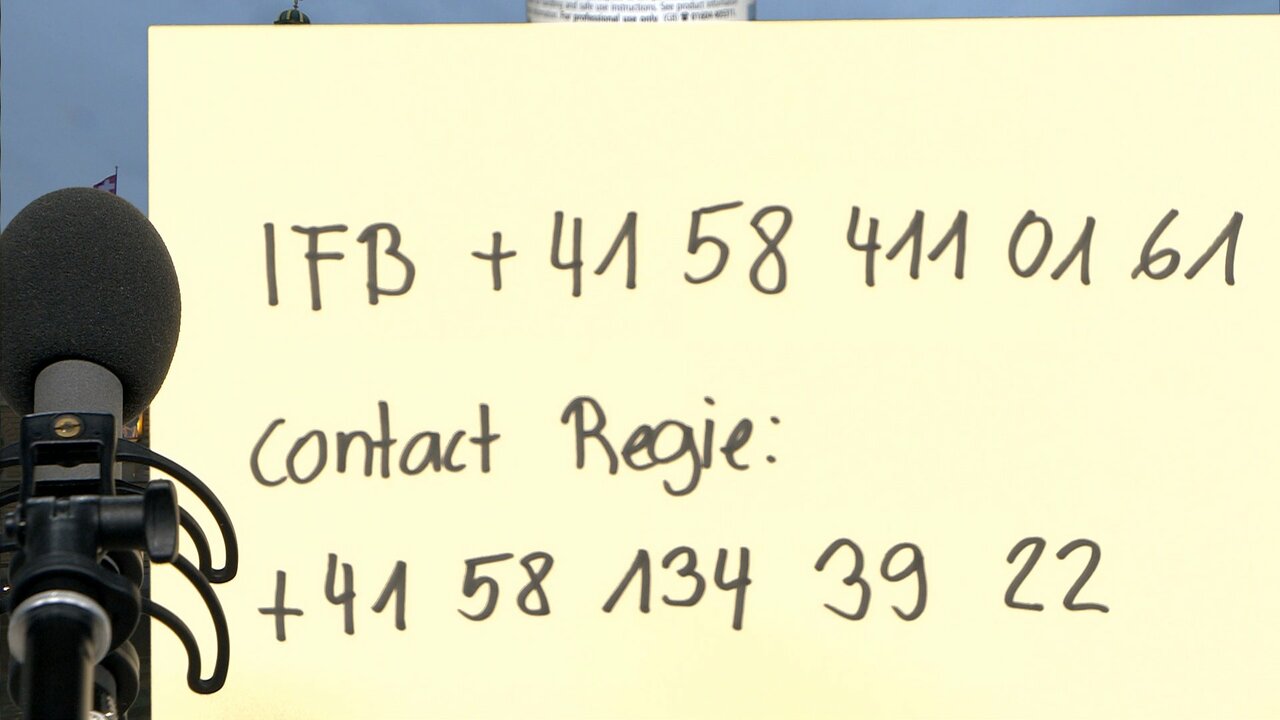 anding and safe use instructions. See product
For professional use only.
IFB +41 58 411 01 61
Contact Regie:
+41 58 134 39 22